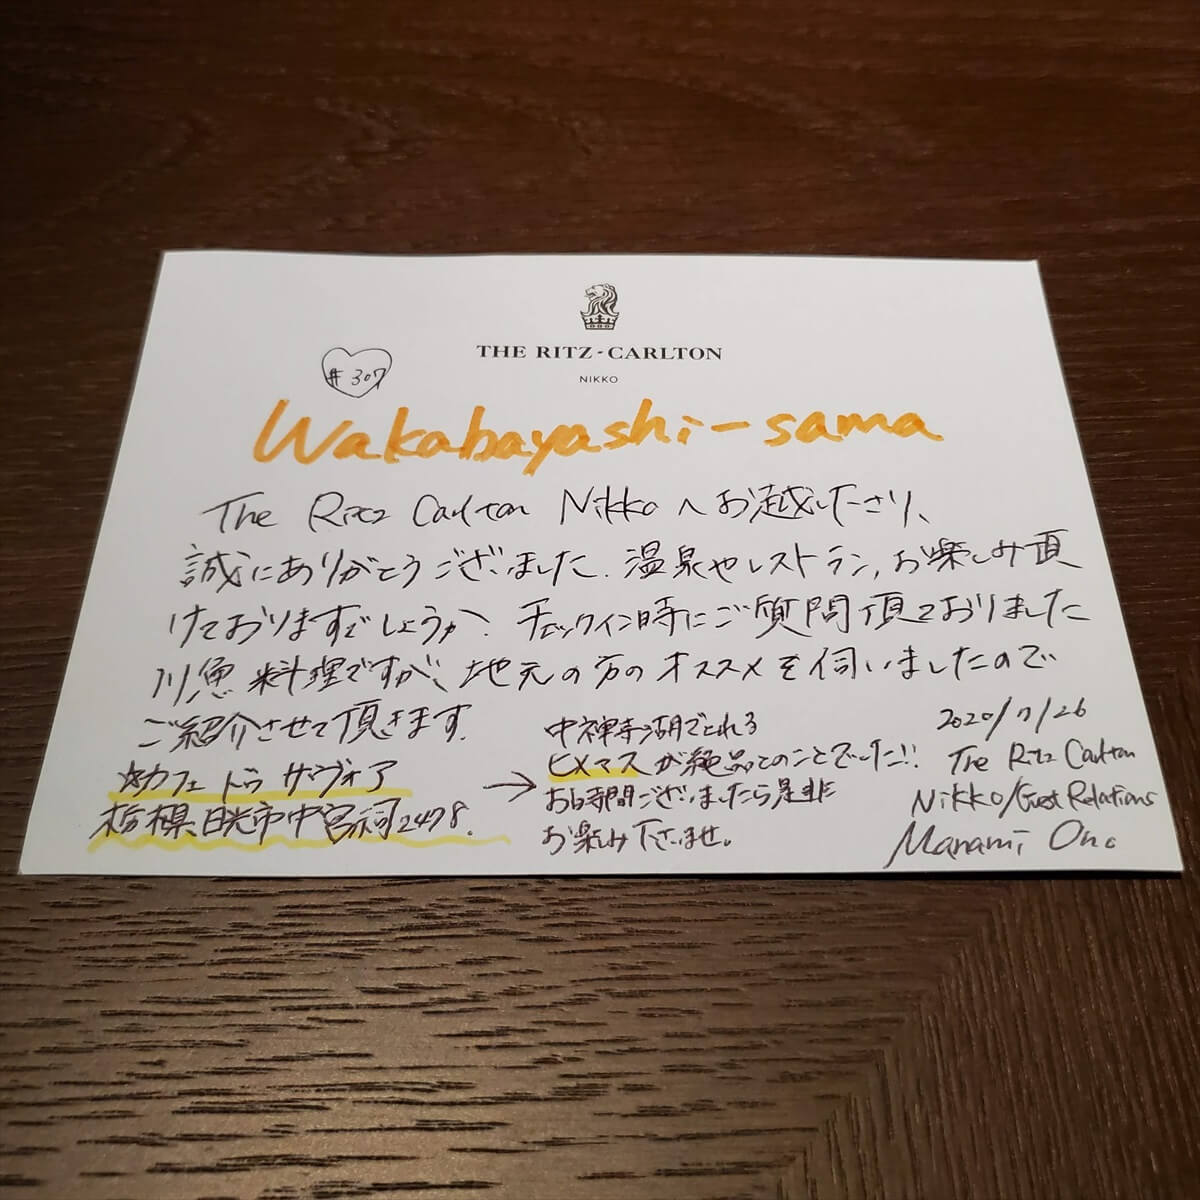 THE RITZ-CARLTON
NIKKO
#307
Wakabayashi-sama
The Ritz Carlton Nikkoへお越し下さり、
誠にありがとうございました。温泉やレストラン、お楽しみ頂
けておりますでしょうか。チェックイン時にご質問頂いておりました
川魚料理ですが、地元の方のオススメを伺いましたので
ご紹介させて頂きます。
☆カフェ ドゥ サヴォア
栃木県日光市中宮祠2478.
→ 中禅寺湖でとれる
ヒメマスが絶品とのことでした!!
お時間ございましたら是非
お楽しみ下さいませ。
2020/7/26
The Ritz Carlton
Nikko/Guest Relations
Manami Ono